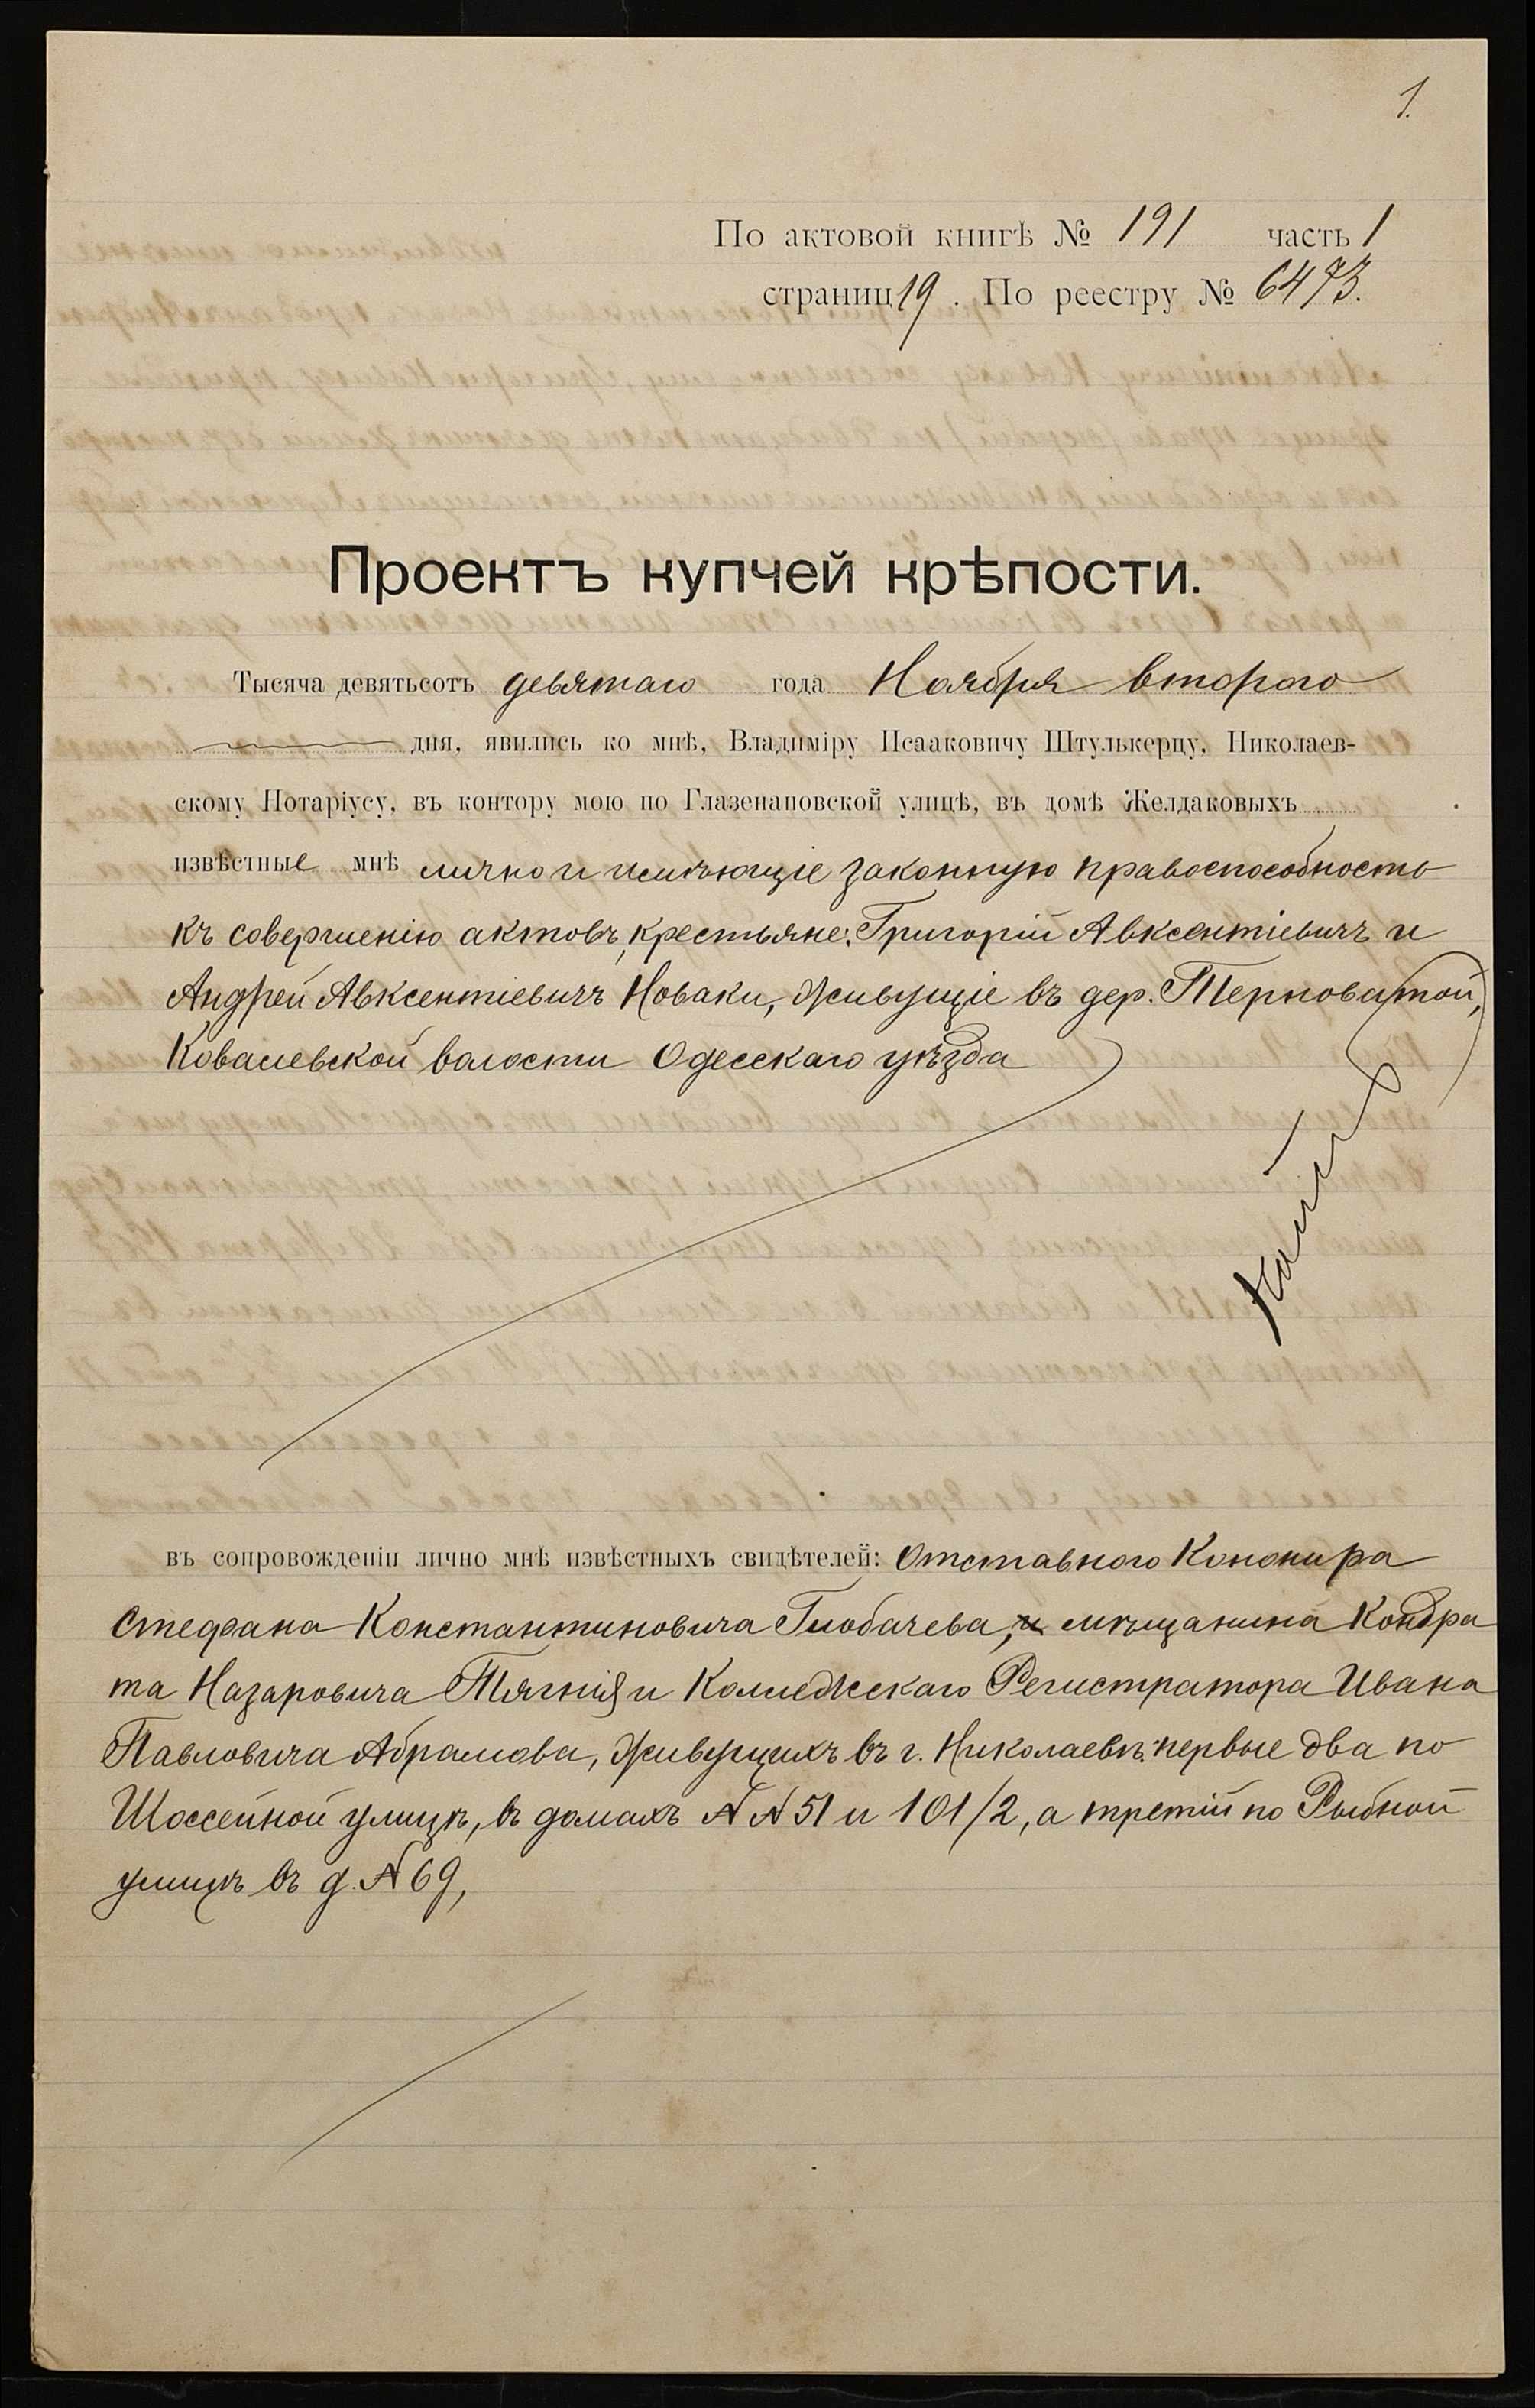 1.
По актовой книгѣ № 191 часть 1
страниц 19. По реестру № 6473.
Проектъ купчей крѣпости.
Тысяча девятьсотъ девятаго года Ноября второго
дня, явились ко мнѣ, Владиміру Исааковичу Штулькерцу, Николаев-
скому Нотаріусу, въ контору мою по Глазенаповской улицѣ, въ домѣ Желдаковыхъ
извѣстные мнѣ лично и имѣющіе законную правоспособность
къ совершенію актовъ, крестьяне: Григорій Авксентіевичъ и
Андрей Авксентіевичъ Новаки, живущіе въ дер. Терноватой,
Ковалевской волости Одесскаго уѣзда
въ сопровожденіи лично мнѣ извѣстныхъ свидѣтелей: Отставного Кононира
Стефана Константиновича Глобачева, и мѣщанина Кондра
та Назаровича Тягнія и Коллежскаго Регистратора Ивана
Павловича Абрамова, живущихъ въ г. Николаевѣ: первые два по
Шоссейной улицѣ, въ домахъ №№ 51 и 101/2, а третій по Рыбной
улицѣ въ д. № 69,